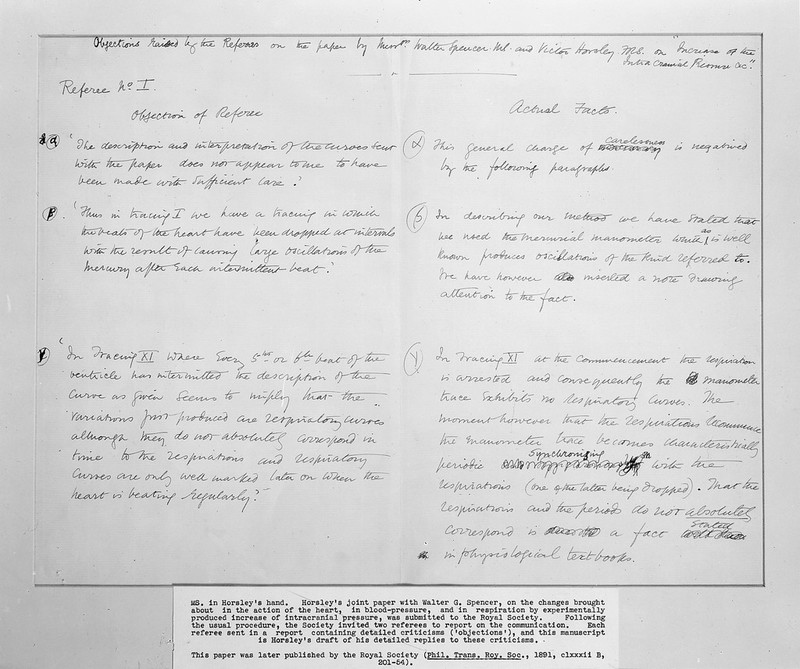 Objections Raised by the Referees on the paper by Messrs Walter Spencer M.S. and Victor Horsley F.R.S. on "Increase of the
Intra Cranial Pressure &c".
Referee No I.
Objection of Referee
(a) "The description and interpretation of the curves sent
with the paper does not appear to me to have
been made with sufficient care."
(β) . "Thus in tracing I we have a tracing in which
the beats of the heart have been dropped at intervals
with the result of causing large oscillations of the
Mercury after each intermittent beat."
γ "In Tracing XI where every 5th or 6th beat of the
ventricle has intermitted the description of the
curve as given seems to imply that the
variations produced are respiratory curves
although they do not absolutely correspond in
time to the respirations and respiratory
curves are only well marked later on when the
heart is beating regularly."
Actual Facts.
(α) This general charge of carelessness is negatived
by the following paragraphs
(β) In describing our method we have stated that
we used the Mercurial manometer which as is well
known produces oscillations of the kind referred to.
We have however inserted a note drawing
attention to the fact.
(γ) In Tracing XI at the commencement the respiration
is arrested and consequently the manometer
trace exhibits no respiratory curves. The
moment however that the respirations recommence
the manometer trace becomes characteristically
periodic synchronising with the
respirations (one of the latter being dropped). That the
respirations and the periods do not absolutely
correspond is a fact stated
in physiological textbooks.
MS. in Horsley's hand. Horsley's joint paper with Walter G. Spencer, on the changes brought
about in the action of the heart, in blood-pressure, and in respiration by experimentally
produced increase of intracranial pressure, was submitted to the Royal Society. Following
the usual procedure, the Society invited two referees to report on the communication. Each
referee sent in a report containing detailed criticisms ('objections'), and this manuscript
is Horsley's draft of his detailed replies to these criticisms.
This paper was later published by the Royal Society (Phil. Trans. Roy. Soc., 1891, clxxxii B,
201-54).